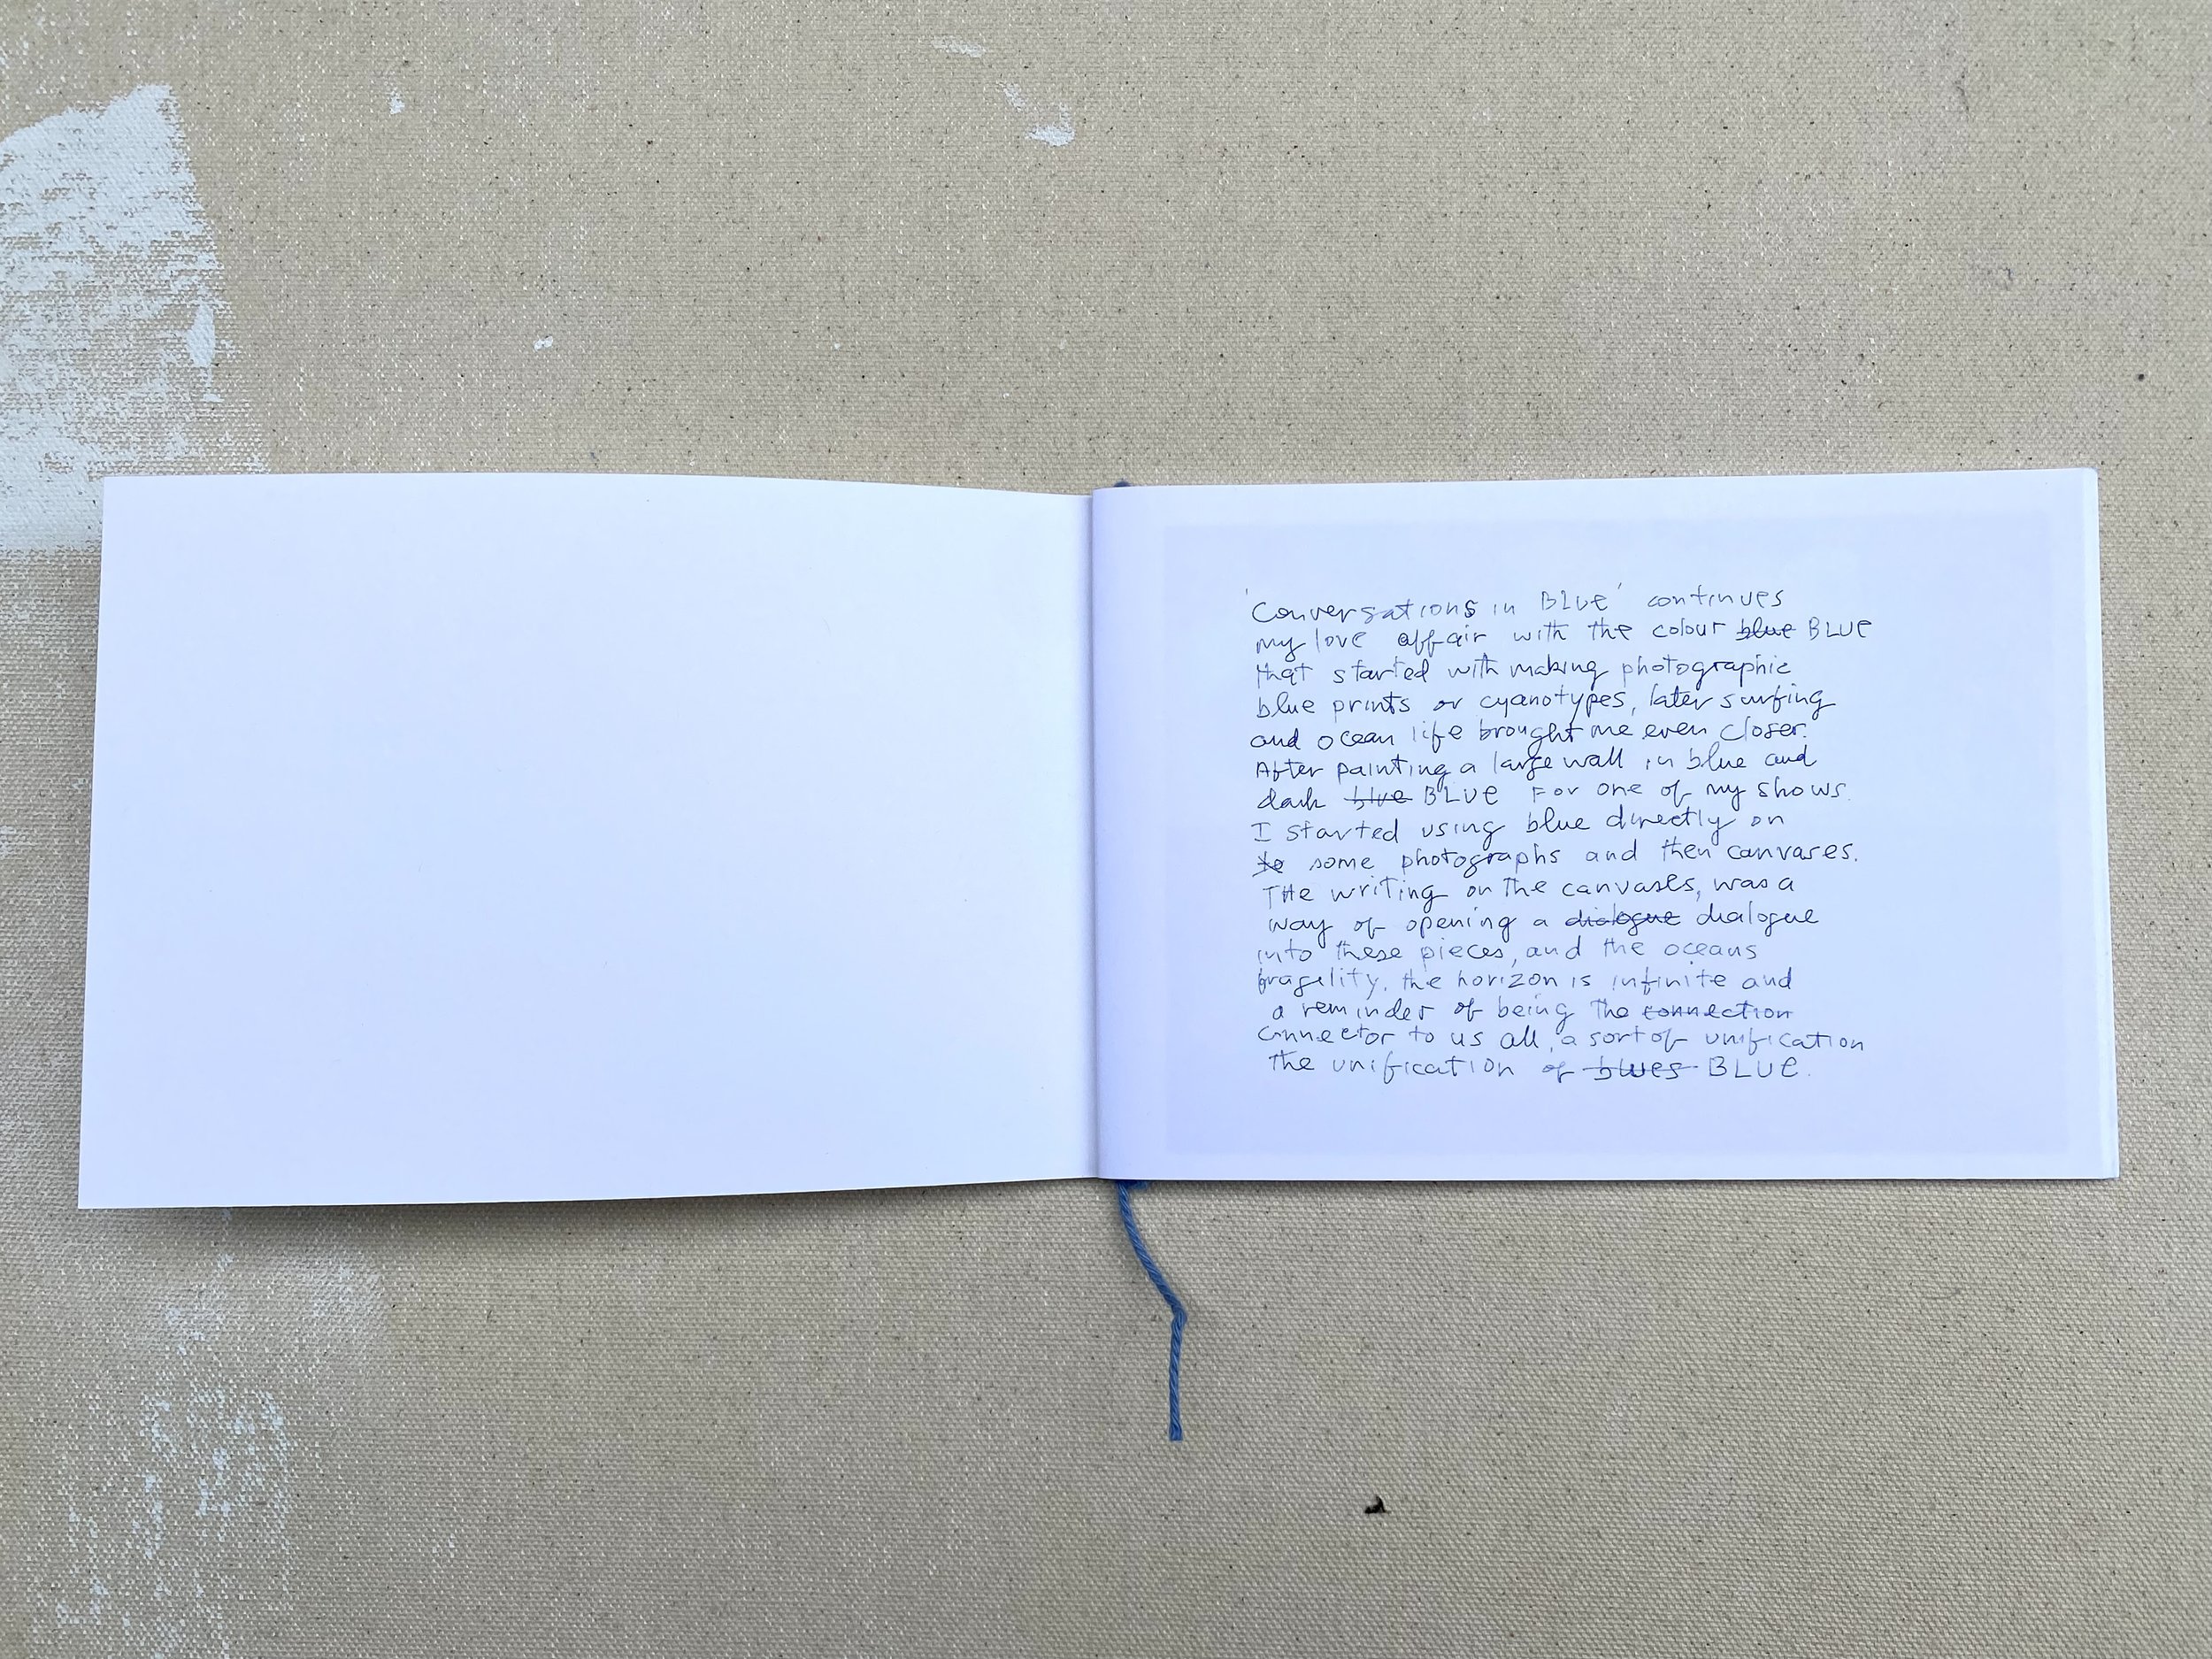 'Conversations in BLUE' continues
my love affair with the colour blue BLUE
that started with making photographic
blue prints or cyanotypes, later surfing
and ocean life brought me even closer.
After painting a large wall in blue and
dark blue BLUE For one of my shows.
I started using blue directly on
to some photographs and then canvases.
THe writing on the canvases, was a
way of opening a dialogue dialogue
into these pieces, and the oceans
fragility. the horizon is infinite and
a reminder of being the connection
connector to us all, a sort of unification
the unification of blues BLUE.